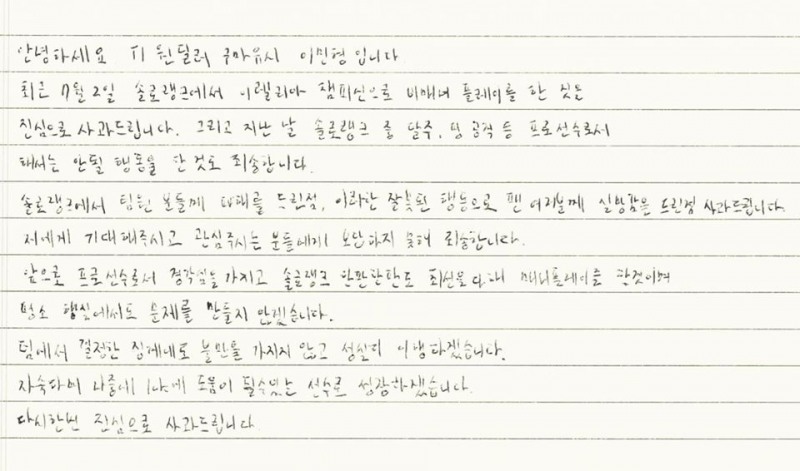 안녕하세요 T1 원딜러 구마유시 이민형 입니다
최근 7월 2일 솔로랭크에서 이렐리아 챔피언으로 비매너 플레이를 한 것은
진심으로 사과드립니다. 그리고 지난 날 솔로랭크 중 탈주, 팀 공격 등 프로선수로서
해서는 안될 행동을 한 것도 죄송합니다.
솔로랭크에서 팀원 분들께 피해를 드린점, 이러한 잘못된 행동으로 팬 여러분께 실망감을 드린점 사과드립니다
저에게 기대해주시고 관심주시는 분들에게 보답하지 못해 죄송합니다.
앞으로 프로선수로서 경각심을 가지고 솔로랭크 한판한판도 최선을 다해 매너플레이를 할것이며
평소 행실에서도 문제를 만들지 않겠습니다.
팀에서 결정한 징계내용 불만을 가지지 않고 성실히 이행하겠습니다.
자숙하며 나중에 도움이 될수있는 선수로 성장하겠습니다.
다시한번 진심으로 사과드립니다